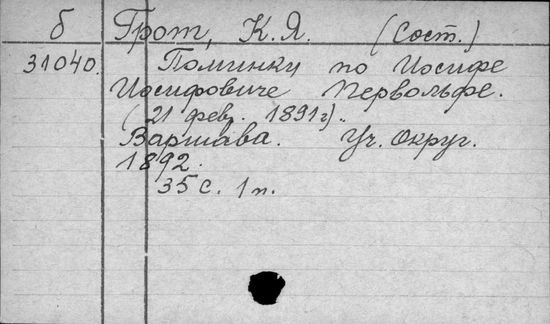 б Грот, К. Я. (Сост.)
31040. Поминки по Иосифе
Иосифовиче Первольфе.
(21 февр. 1891 г.).
Варшава. Уч. Округ.
1892.
35 с. 1 п.